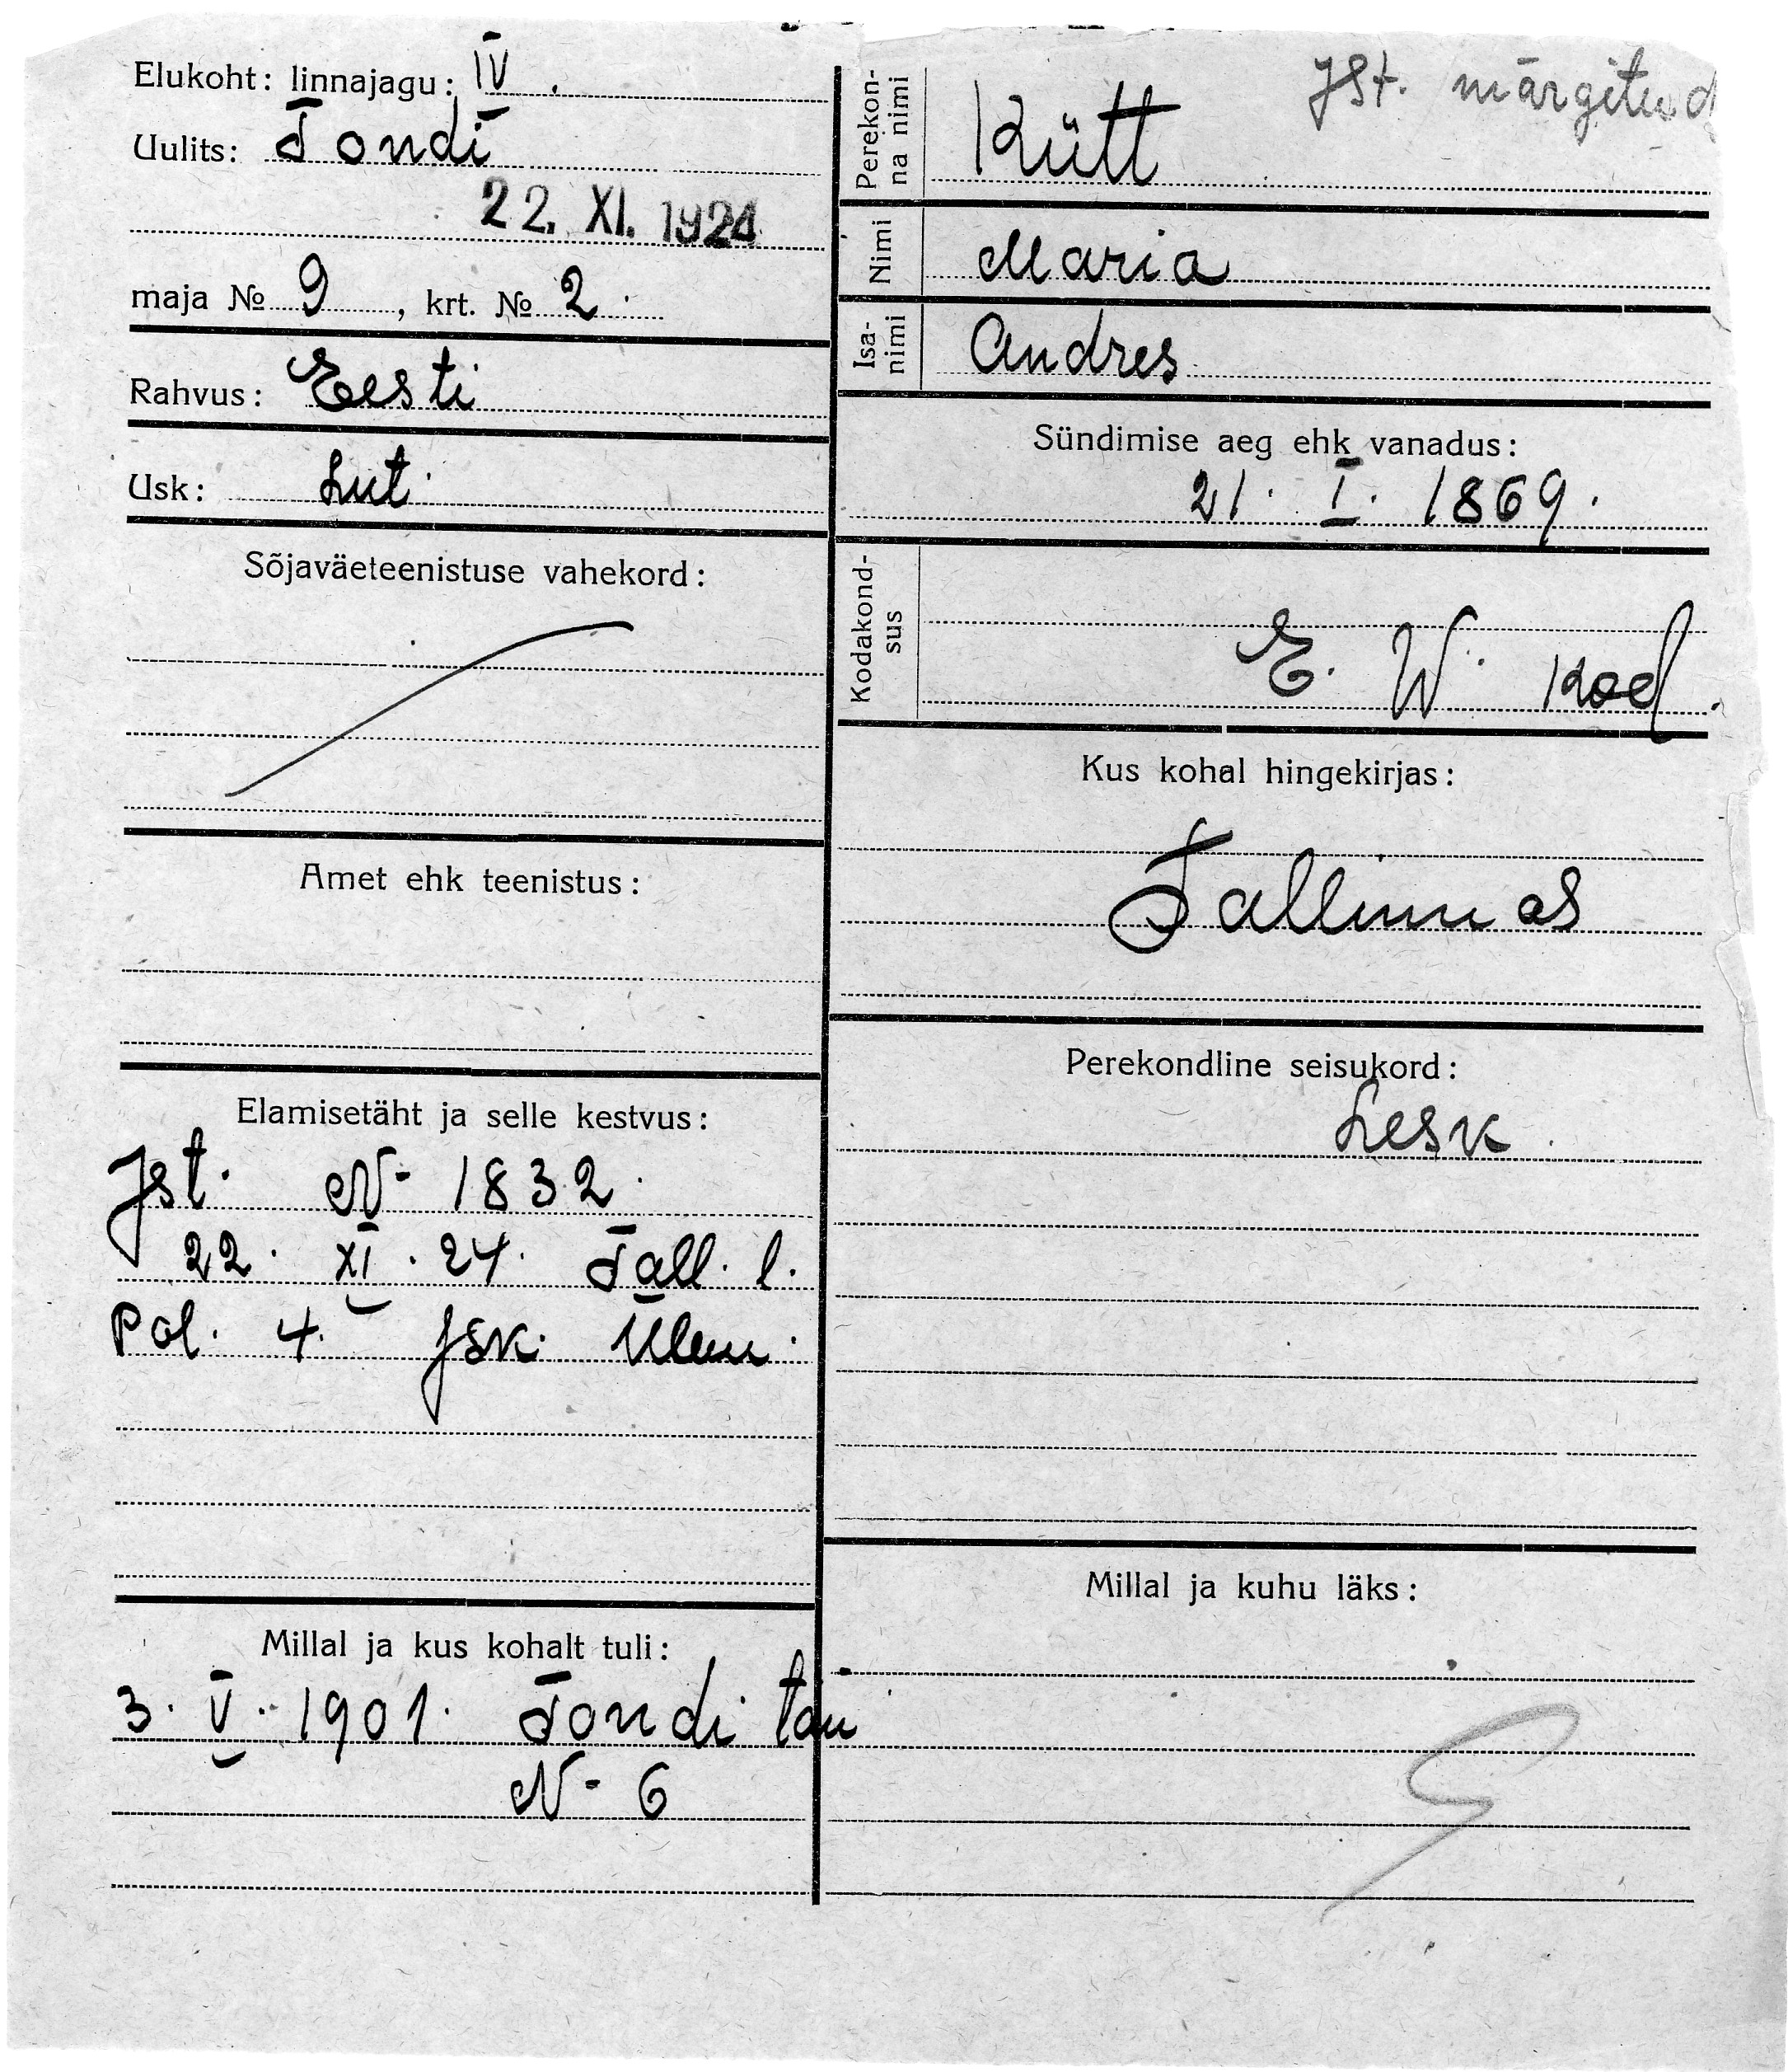 Elukoht: linnajagu: IV.
Uulits: Tondi
22. XI. 1924
maja № 9, krt. № 2.
Rahvus: Eesti
Usk: Lut.
Sõjaväeteenistuse vahekord:
Amet ehk teenistus:
Elamisetäht ja selle kestvus:
Jst. N- 1832.
22. XI. 24. Tall. l.
Pol. 4. jsk. Ülem.
Millal ja kus kohalt tuli:
3. V. 1901. Tondi tän
N- 6
Jst. märgitud
Perekon-
na nimi
Kütt
Nimi Maria
Isa-
nimi
Andres
Sündimise aeg ehk vanadus:
21. I. 1869.
Kodakond-
sus
E. W. kod.
Kus kohal hingekirjas:
Tallinnas
Perekondline seisukord:
Lesk.
Millal ja kuhu läks: